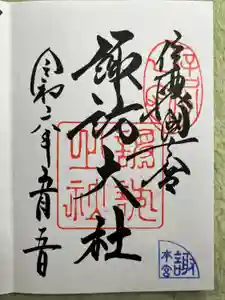 信濃國一之宮
諏訪大社
令和二年五月五日
諏訪大社
諏
本宮